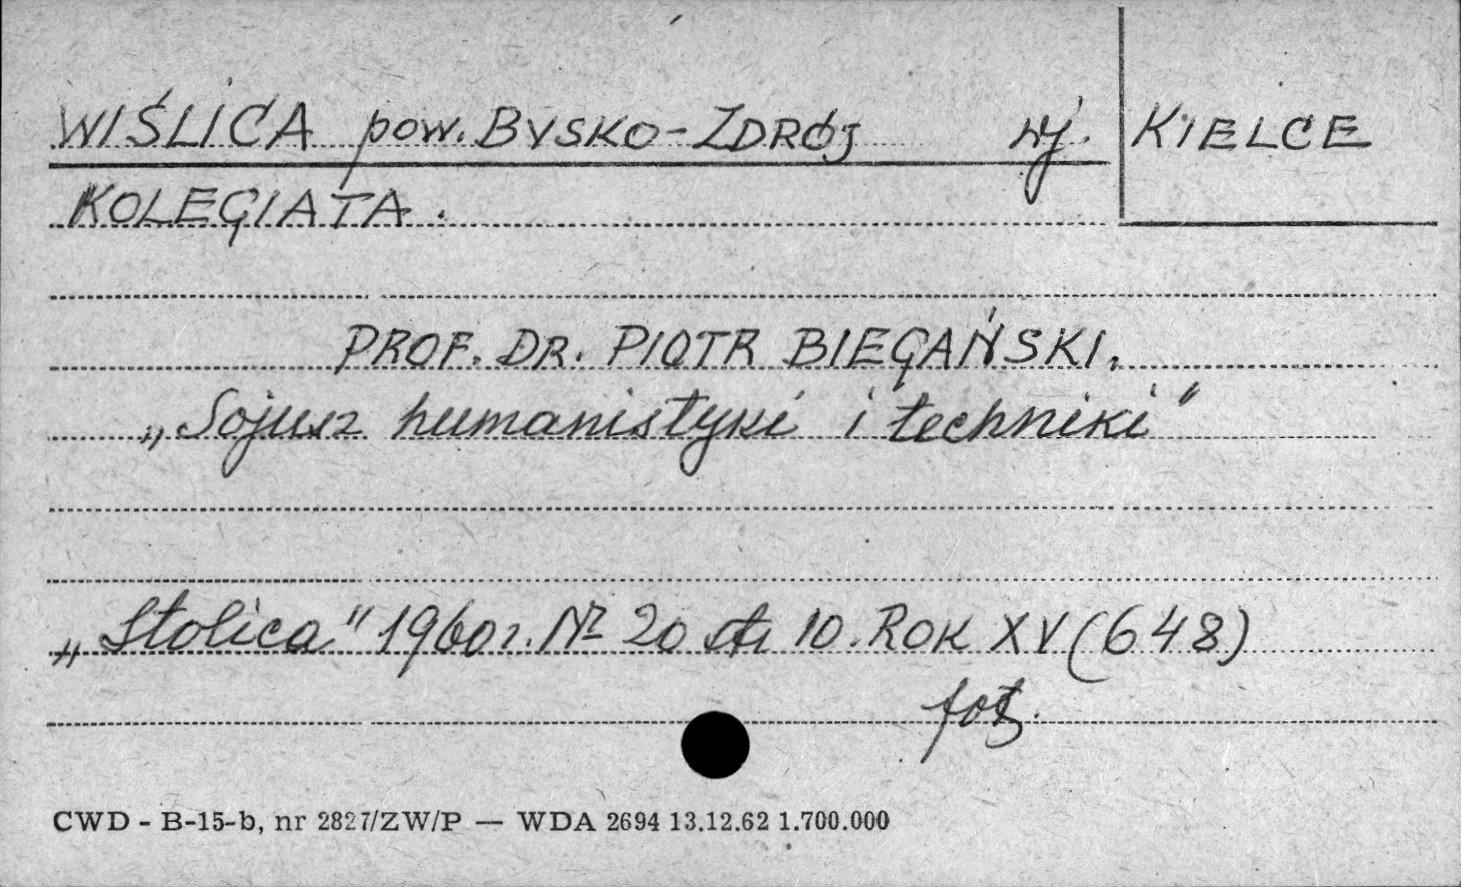 WIŚLICA pow. BUSKO-ZDRÓJ wj. KIELCE
KOLEGIATA.
PROF. DR. PIOTR BIEGAŃSKI.
„Sojusz humanistyki i techniki"
„Stolica" 1960 r. Nr 20 str 10. ROK XV (648)
fot.
CWD - B-15-b, nr 2827/ZW/P — WDA 2694 13.12.62 1.700.000